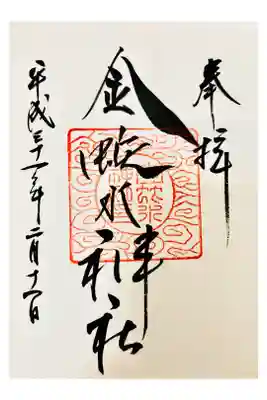 奉拝
金蛇水神社
平成三十一年二月十一日